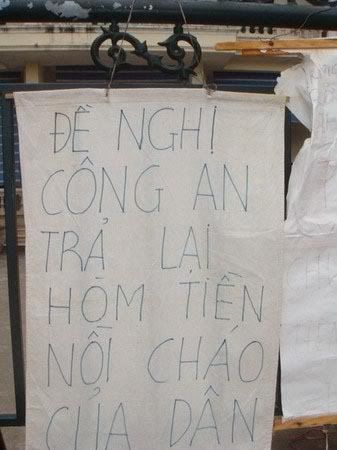 ĐỀ NGHỊ
CÔNG AN
TRẢ LẠI
HÒM TIỀN
NỒI CHÁO
CỦA DÂN